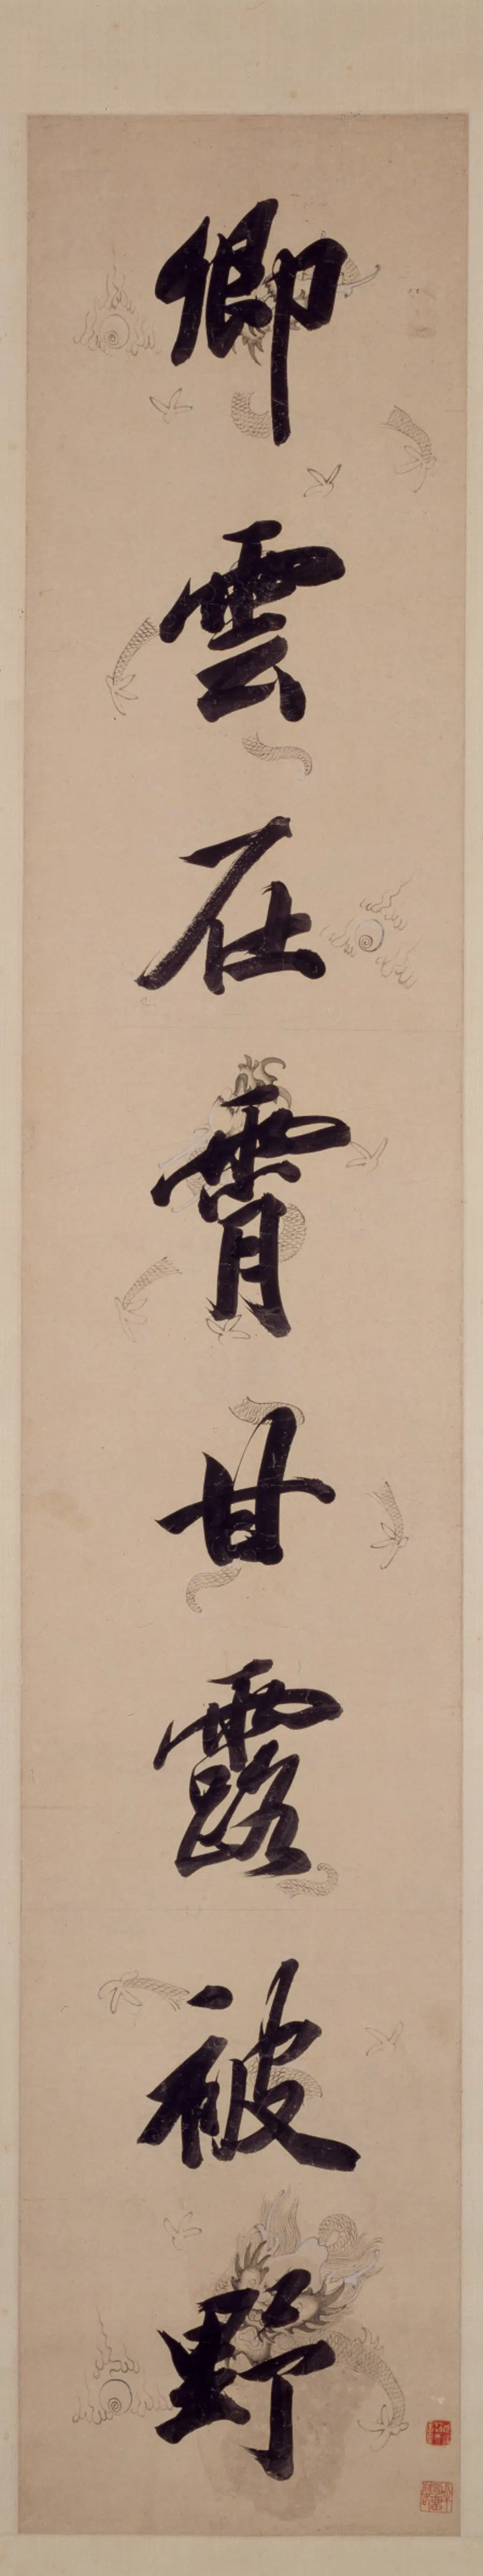 卿雲在霄甘露被野